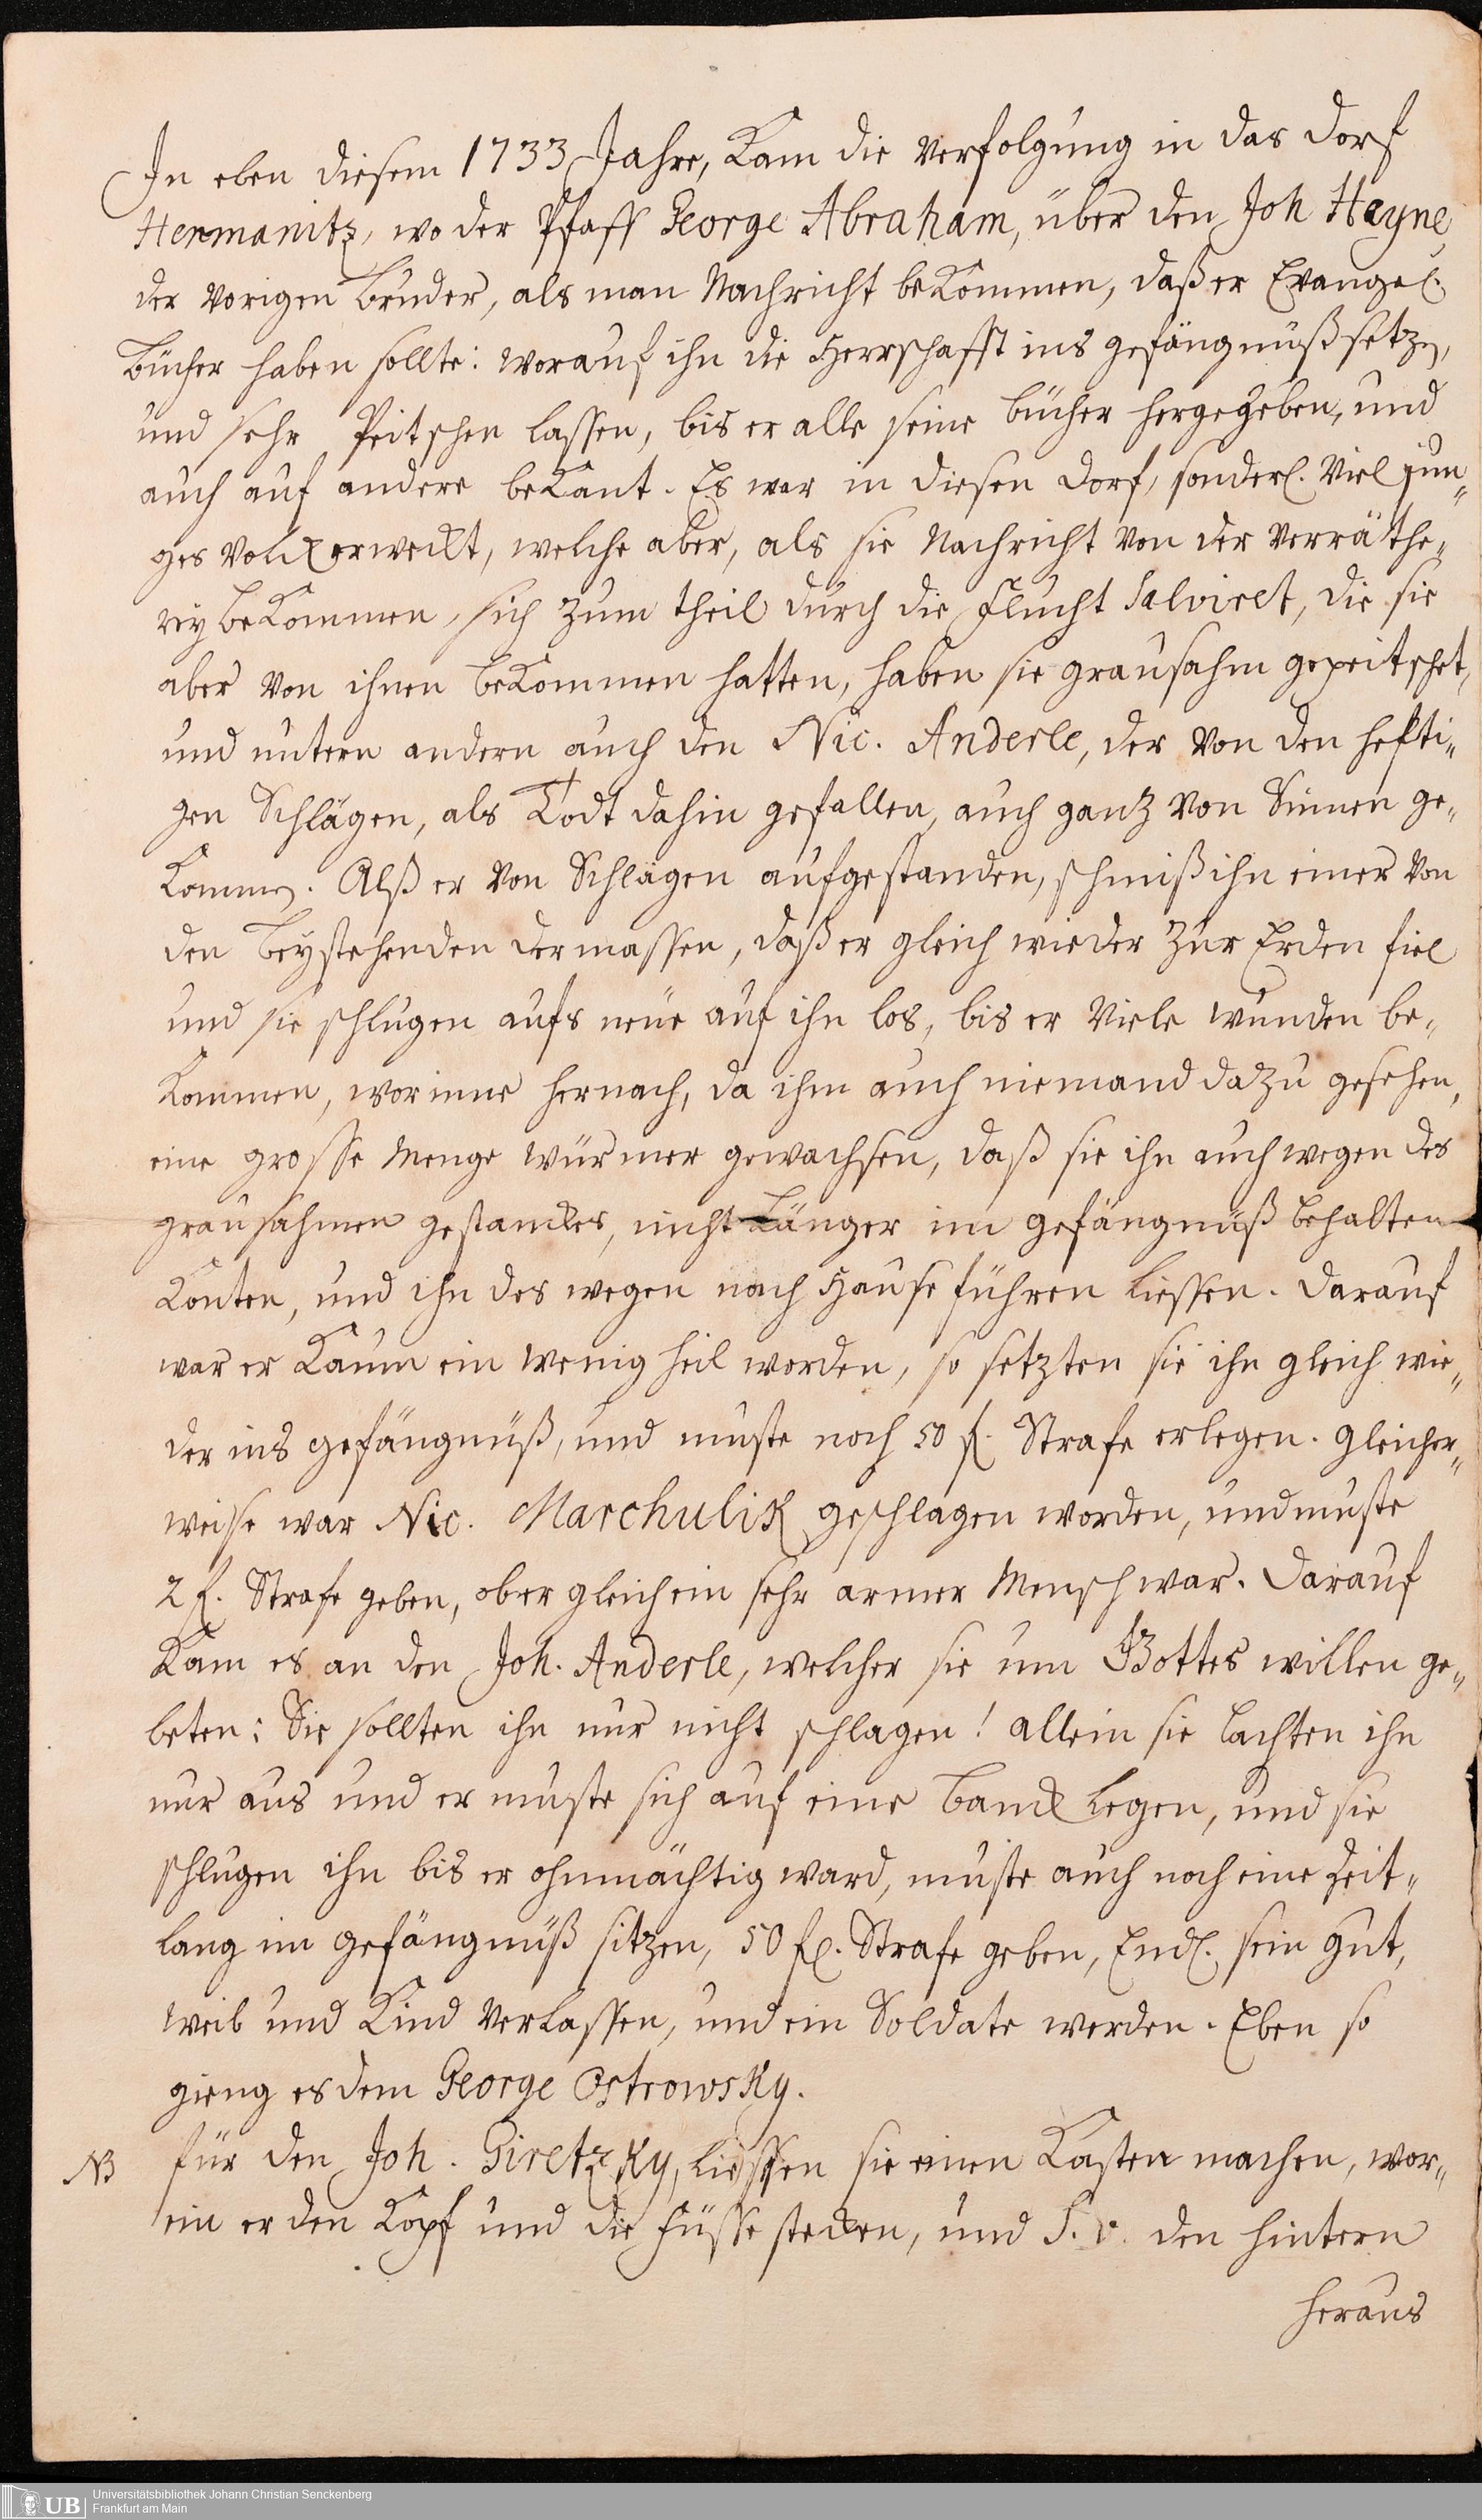 In eben diesem 1733 Jahre, kam die Verfolgung in das Dorf
Hermanitz, wo der Pfaff George Abraham, über den Joh Hayne,
der vorigen Brüder, als man Nachricht bekommen, daß er Evangel.
Bücher haben sollte: worauf ihn die Herrschafft ins gefängnuß setzen,
und sehr Peitschen lassen, bis er alle seine bücher hergegeben, und
auch auf andere bekant. Es war in diesen Dorf, sonderl. viel jun„
ges Volck erweckt, welche aber, als sie Nachricht von der Verräthe„
rey bekommen, sich zum theil durch die Flucht salviret, die sie
aber von ihnen bekommen hatten, haben sie grausahm gepeitschet,
und untern andern auch den Nic. Anderle, der von den hefti„
gen Schlägen, als Todt dahin gefallen, auch ganz von Sinnen ge„
kommen. Alß er von Schlägen aufgestanden, schmiß ihn einer von
den beystehenden dermassen, daß er gleich wieder zur Erden fiel
und sie schlugen aufs neue auf ihn los, bis er viele wunden be„
kommen, worinne hernach, da ihm auch niemand dazu gesehen,
eine grosse Menge würmer gewachsen, daß sie ihn auch wegen des
grausahmen gestanckes, nicht länger im gefängnuß behalten
konten, und ihn des wegen nach Hause führen liessen. Darauf
war er kaum ein wenig heil worden, so setzten sie ihn gleich wie„
der ins gefängnuß, und muste noch 50 fl. Strafe erlegen. Gleicher„
weise war Nic. Marchulik geschlagen worden, und muste
2 f. Strafe geben, ober gleich ein sehr armer Mensch war. Darauf
kam es an den Joh. Anderle, welcher sie um Gottes willen ge„
beten: Sie sollten ihn nur nicht schlagen! allein sie lachten ihn
nur aus und er muste sich auf eine banck legen, und sie
schlugen ihn bis er ohnmächtig ward, muste auch noch eine Zeit„
lang im gefängnuß sitzen, 50 fl. Strafe geben, Endl. sein gut,
weib und Kind verlassen, und ein Soldate werden. Eben so
gieng es dem George Ostrowsky.
NB für den Joh. Giretzky, liessen sie einen Kasten machen, wor„
ein er den Kopf und die füsse stecken, und S. v. den hintern
heraus
Universitätsbibliothek Johann Christian Senckenberg
Frankfurt am Main
UB